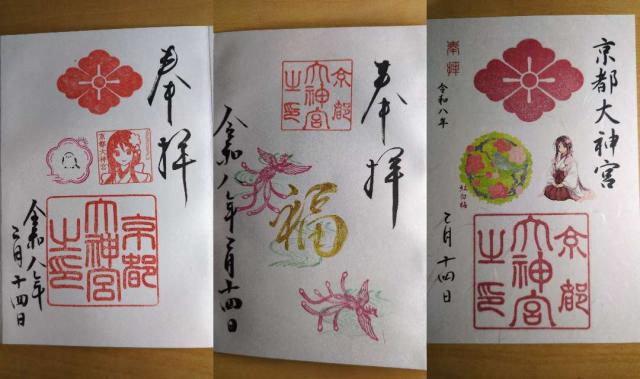 奉拝
京都大神宮
京都
大神宮
之印
令和八年
二月十四日
京都
大神宮
之印
奉拝
福
令和八年二月十四日
京都大神宮
奉拝
令和八年
紅白梅
二月十四日
京都
大神宮
之印